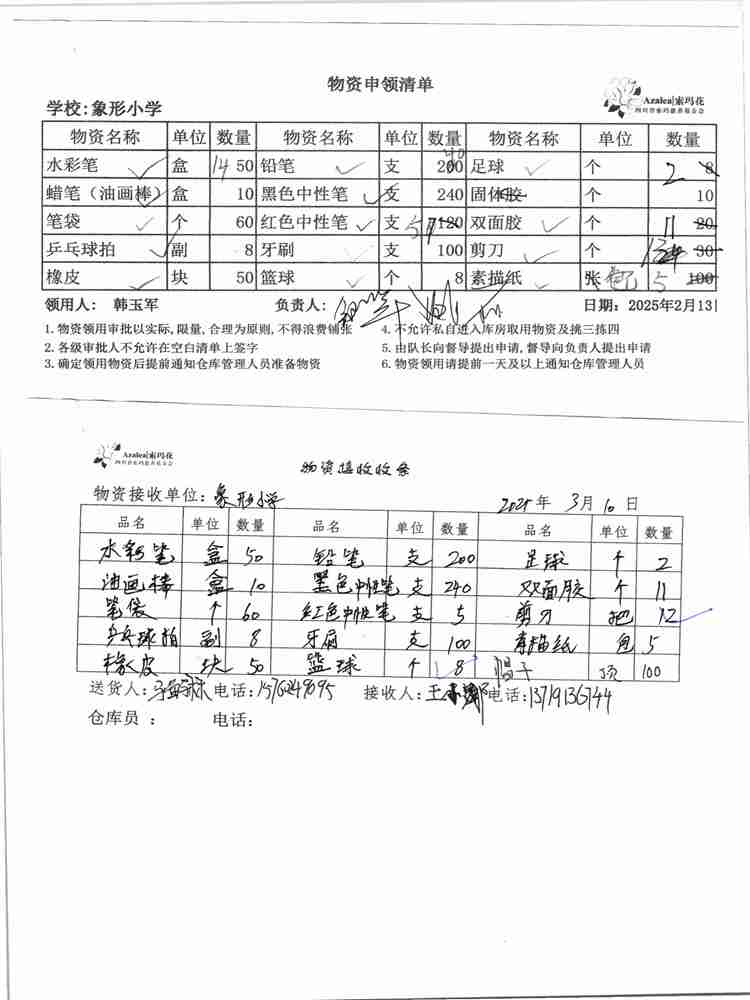 物资申领清单
Azalea|索玛花
四川省索玛慈善基金会
学校:象形小学
物资名称 单位 数量 物资名称 单位 数量 物资名称 单位 数量
水彩笔 盒 14 50 铅笔 支 200 40 足球 个 2 8
蜡笔（油画棒） 盒 10 黑色中性笔 支 240 固体胶 个 10
笔袋 个 60 红色中性笔 支 5 120 双面胶 个 11 20
乒乓球拍 副 8 牙刷 支 100 剪刀 个 30
橡皮 块 50 篮球 个 8 素描纸 张 包 5 100
领用人: 韩玉军 负责人: 日期: 2025年2月13
1.物资领用审批以实际,限量,合理为原则,不得浪费铺张 4.不允许私自进入库房取用物资及挑三拣四
2.各级审批人不允许在空白清单上签字 5.由队长向督导提出申请,督导向负责人提出申请
3.确定领用物资后提前通知仓库管理人员准备物资 6.物资领用请提前一天及以上通知仓库管理人员
Azalea|索玛花
四川省索玛慈善基金会
物资接收收条
物资接收单位: 象形小学 2025年 3月 10日
品名 单位 数量 品名 单位 数量 品名 单位 数量
水彩笔 盒 50 铅笔 支 200 足球 个 2
油画棒 盒 10 黑色中性笔 支 240 双面胶 个 11
笔袋 个 60 红色中性笔 支 5 剪刀 把 12
乒乓球拍 副 8 牙刷 支 100 素描纸 包 5
橡皮 块 50 篮球 个 8 帽子 顶 100
送货人: 电话: 接收人: 王 电话: 13719136744
仓库员 : 电话: